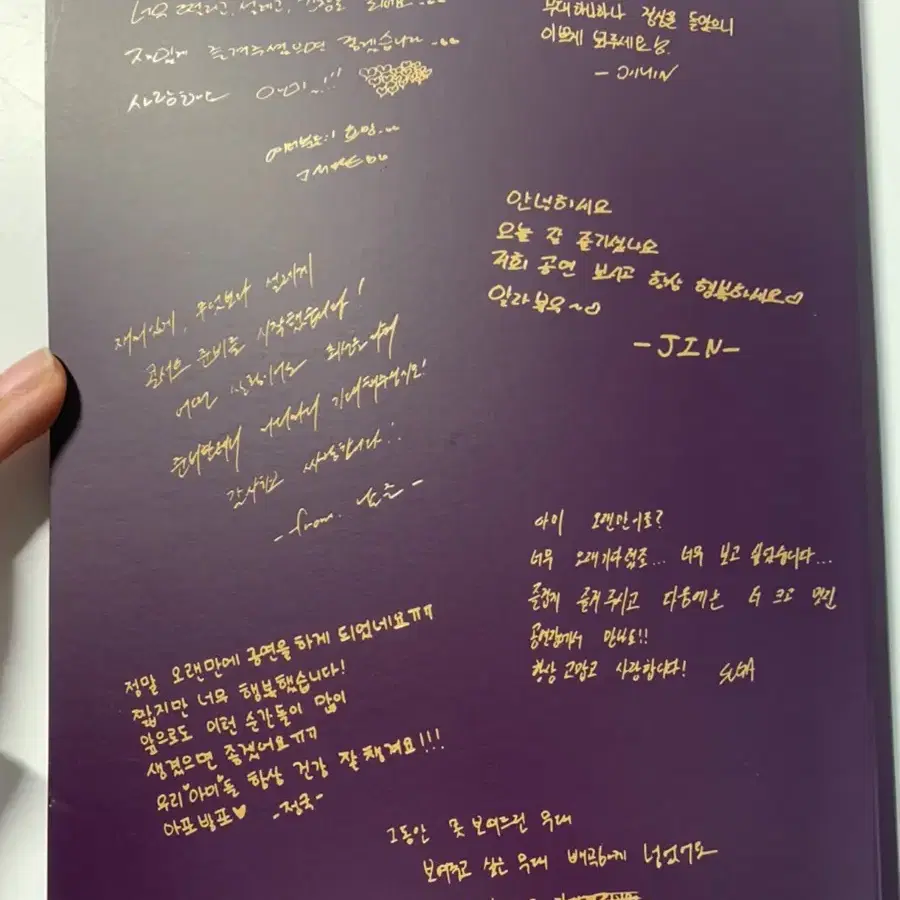 너무 떨리고, 설레고, 긴장도 되네요...
재밌게 즐겨주셨으면 좋겠습니다...
사랑해요 아미~!!!
무대 하나하나 정성을 들였으니
이쁘게 봐주세요
- JIMIN
안녕하세요
오늘 잘 즐기셨나요
저희 공연 보시고 항상 행복하세요♡
알라뷰요~♡
-JIN-
재미있게, 무엇보다 설레게
콘서트 준비를 시작했습니다!
어떤 상황이어도 최선을 다해
준비할테니 기대해주십시오!
감사하고 사랑합니다.
-from. 남준-
아이 오랜만이죠?
너무 오래 기다렸죠... 너무 보고 싶었습니다...
즐겁게 즐겨주시고 다음에는 더 크고 멋진
공연장에서 만나요!!
항상 고맙고 사랑합니다! SUGA
정말 오랜만에 공연을 하게 되었네요ㅠㅠ
짧지만 너무 행복했습니다!
앞으로도 이런 순간들이 많이
생겼으면 좋겠어요ㅠㅠ
우리♥아미♥들 항상 건강 잘 챙겨요!!!
아포방포♥ -정국-
그동안 못 보여드린 무대
보여주고 싶은 무대 넣었어요